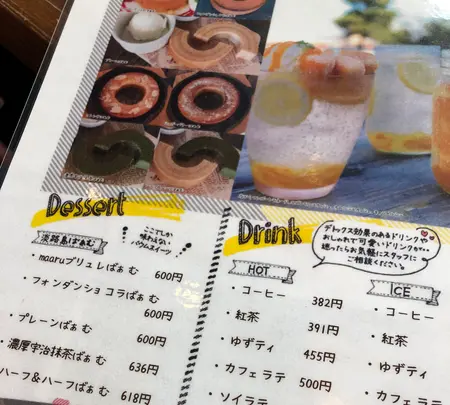 Dessert
ここでしか
味わえない
バウムスイーツ!
淡路島ばぁむ
・maaruブリュレばぁむ 600円
・フォンダンショコラばぁむ
600円
・プレーンばぁむ 600円
・濃厚宇治抹茶ばぁむ 636円
ハーフ&ハーフばぁむ 618円
Drink
デトックス効果のあるドリンクや
おしゃれで可愛いドリンクも♪
迷ったらお気軽にスタッフに
ご相談ください。
HOT
・コーヒー 382円
・紅茶 391円
・ゆずティ 455円
・カフェラテ 500円
・ソイラテ
ICE
・コーヒー
・紅茶
・ゆずティ
・カフェラテ